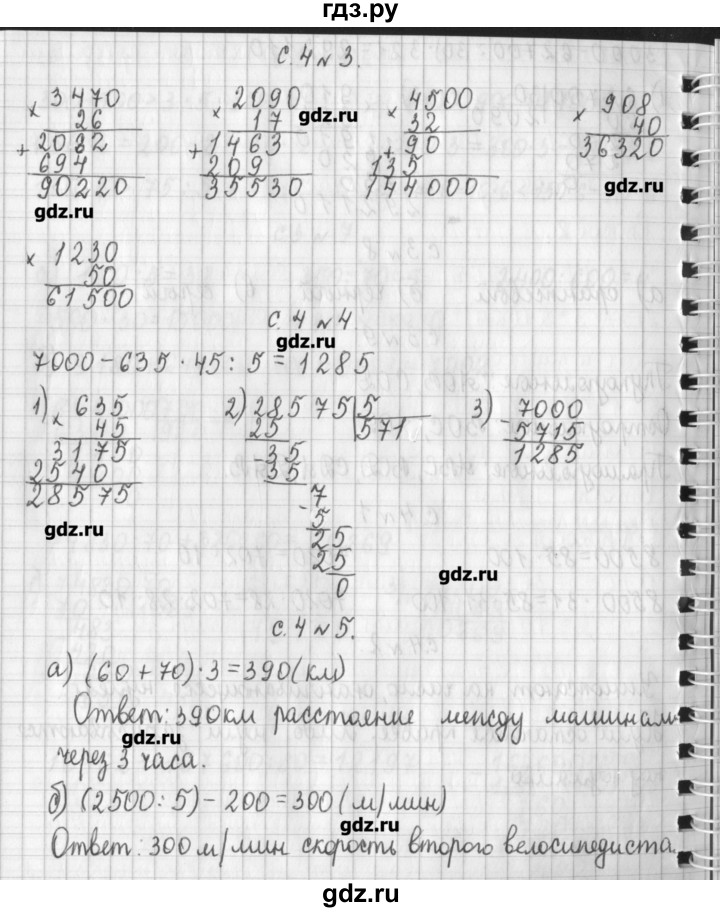 гдз.ру
с. 4 № 3.
× 3470
26
+ 2082
694
90220
× 2090
17
+ 1463
209
35530
× 4500
32
+ 90
135
144000
× 908
40
36320
gdz.ru
gdz.ru
gdz.ru
× 1230
50
61500
с. 4 № 4
gdz.ru
7000 - 635 · 45 : 5 = 1285
1) × 635
45
3175
2540
28575
2) 28575 | 5
25 571
-35
35
- 7
5
25
25
0
3) 7000
- 5715
1285
gdz.ru
gdz.ru
с. 4 № 5.
а) (60 + 70) · 3 = 390 (км)
Ответ: 390 км расстояние между машинами
gdz.ru
через 3 часа.
б) (2500 : 5) - 200 = 300 (м/мин)
gdz.ru
Ответ: 300 м/мин скорость второго велосипедиста.
gdz.ru